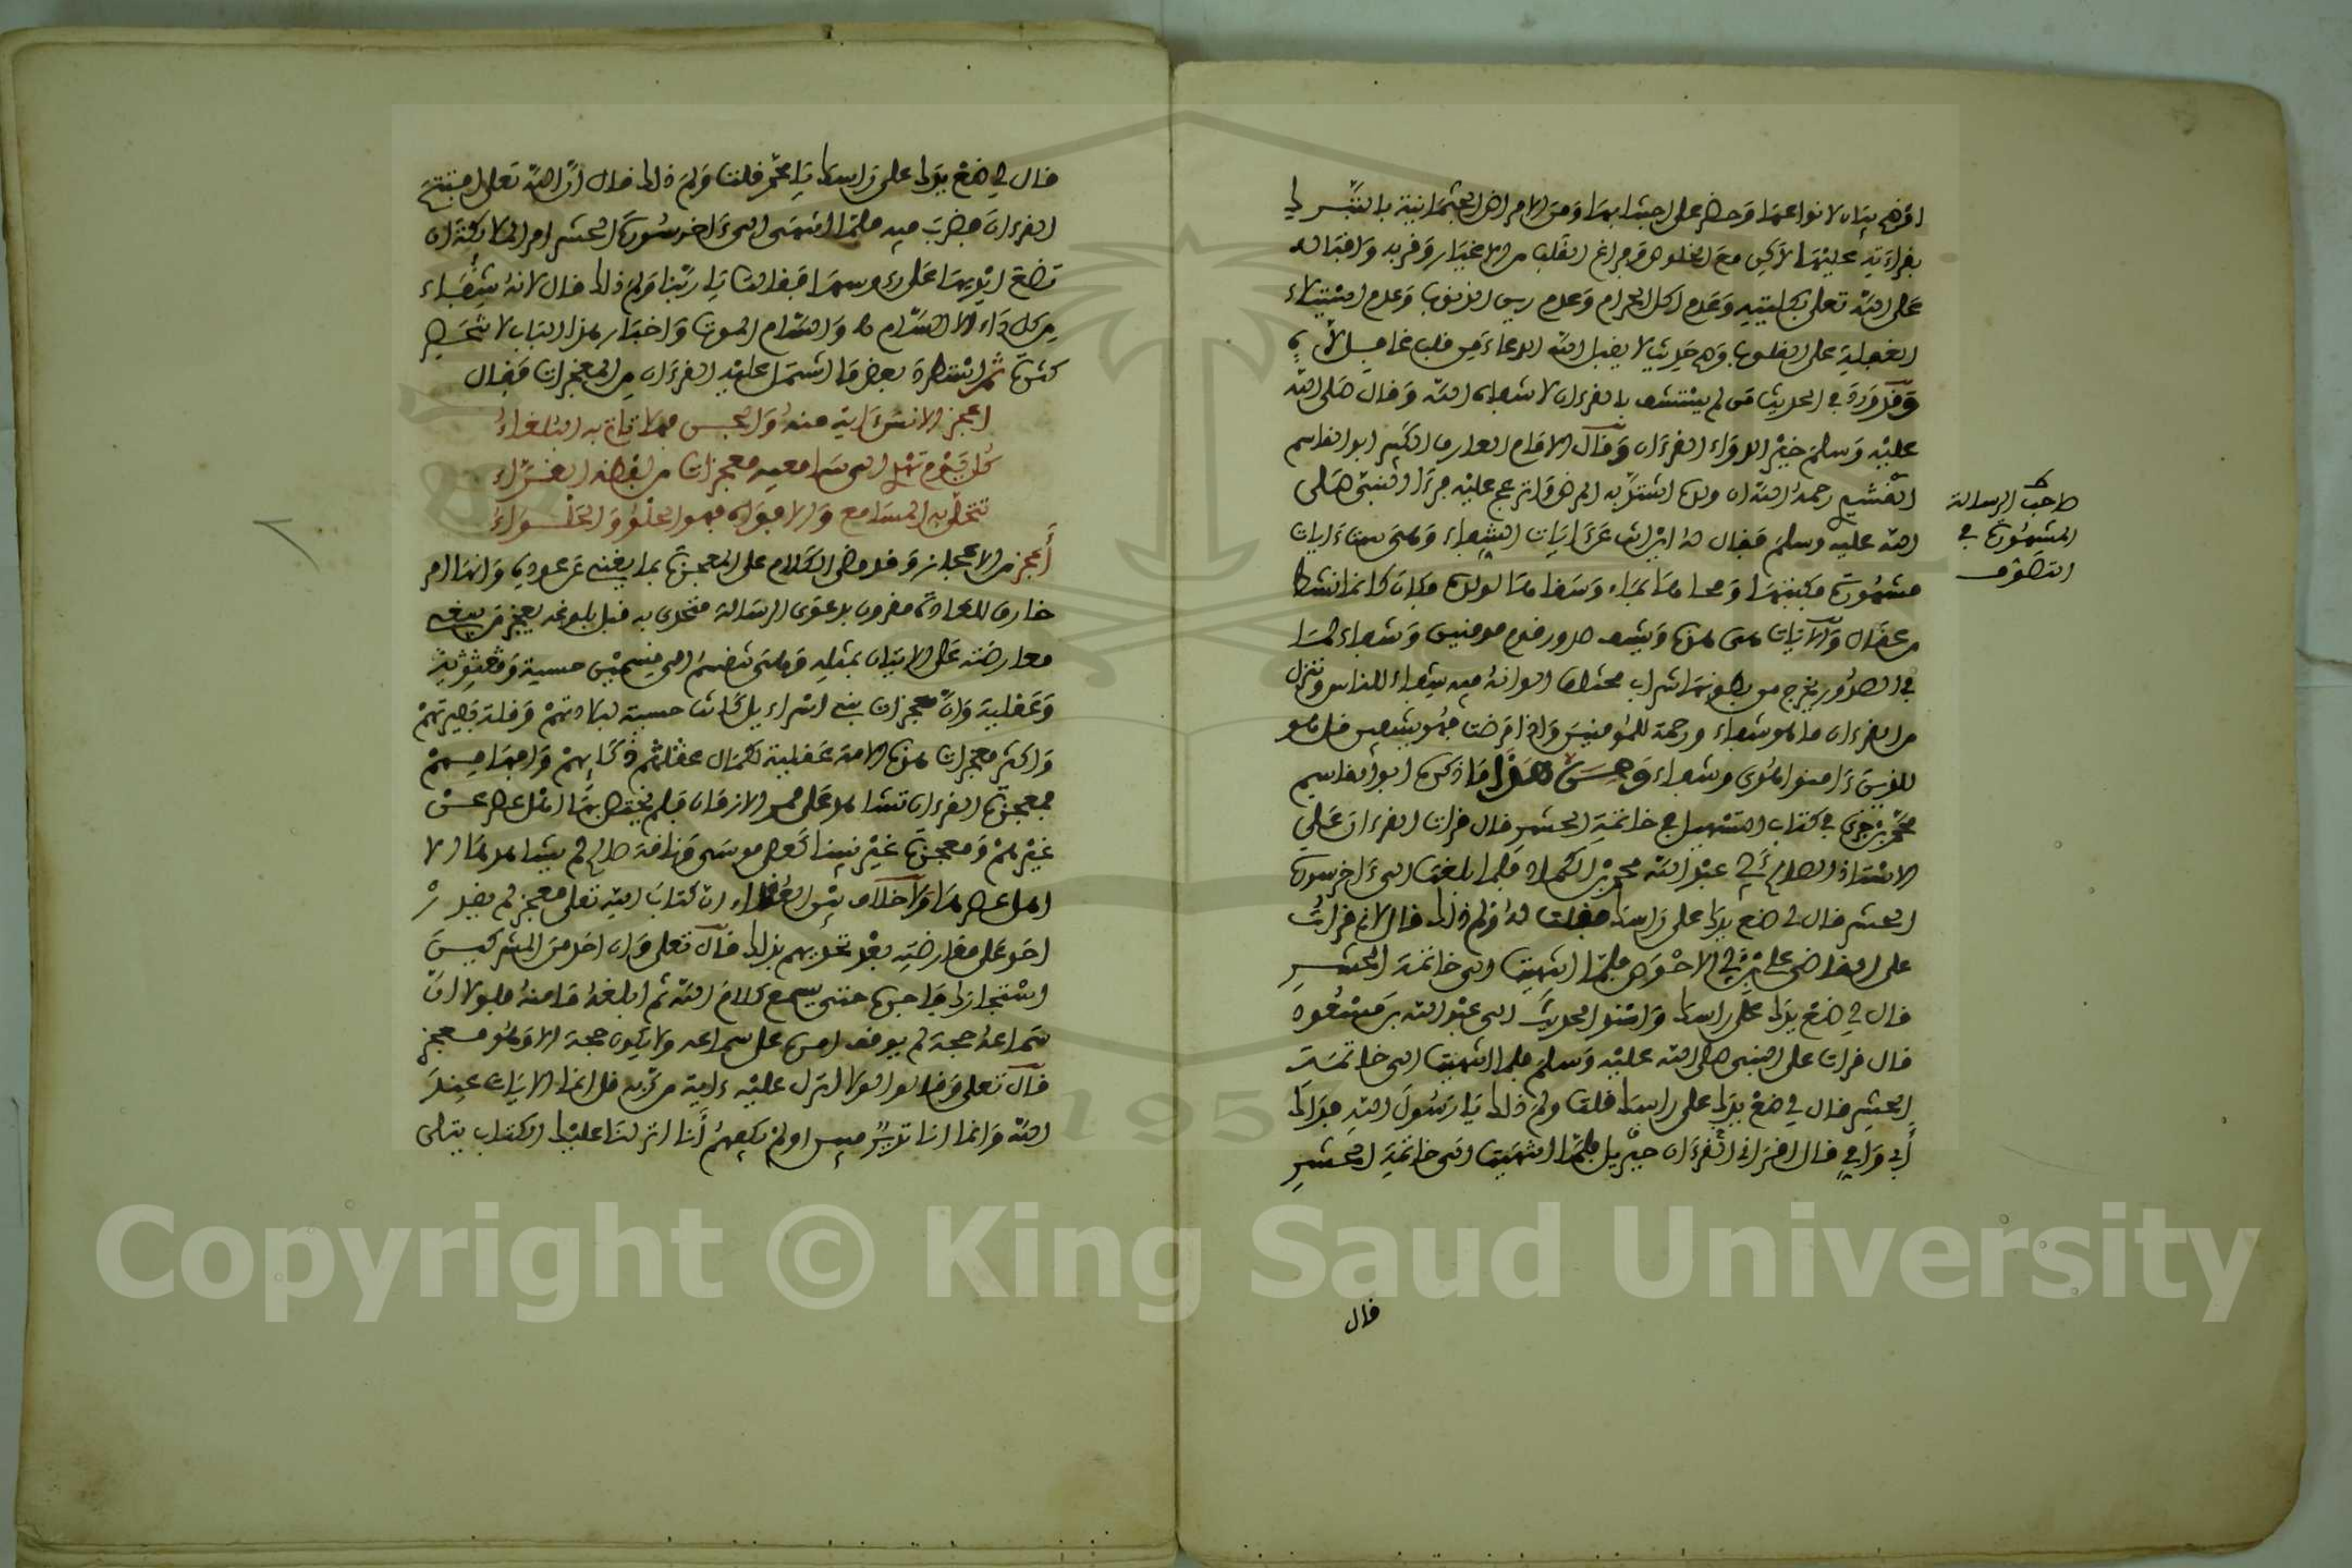 اوضح بيان لانواعها وحض على اجتنابها ومن الامراض الجثمانية بالتبرك
بقراءته عليها لاكن مع الخلوص وفراغ القلب من الاغيار وقربه واقباله
على الله تعلى بكليته وعدم اكل الحرام وعدم رين الذنوب وعدم استيلاء
الغفلة على القلوب وفي حديث لا يقبل الله الدعاء من قلب غافل لاه
وقد ورد في الحديث من لم يستشف بالقرءان لا شفاه الله وقال صلى الله
عليه وسلم خير الدواء القرءان وقال الامام العارف الكبير ابو القاسم
القشيري رحمه الله ان ولده اشتد به المرض وانزعج عليه فرءا النبي صلى
صاحب الرسالة
المشهورة في
التصوف
الله عليه وسلم فقال له اين انت عن ءايات الشفاء وهي ست ءايات
مشهورة فكتبتها ومحاها بماء وسقاها لولده فكان كانما نشط
من عقال والآيات هي هذه ويشف صدور قوم مومنين وشفاء لما
في الصدور يخرج من بطونها شراب مختلف الوانه فيه شفاء للناس وننزل
من القرءان ما هو شفاء ورحمة للمؤمنين واذا مرضت فهو يشفين قل هو
للذين ءامنوا هدى وشفاء ومن هذا ما ذكره ابو القاسم
محمد بن جزي في كتاب التسهيل في خاتمة الحشر قال قرات القرءان على
الاستاذ الصالح ابي عبد الله محمد بن الكماد فلما بلغت الى ءاخر سورة
الحشر قال لي ضع يدك على راسك فقلت له ولم ذلك قال لاني قرات
على القاضي علي بن ابي الاحوص فلما انتهيت الى خاتمة الحشر
قال لي ضع يدك على راسك واسند الحديث الى عبد الله بن مسعود
قال قرات على النبي صلى الله عليه وسلم فلما انتهيت الى خاتمة
الحشر قال لي ضع يدك على راسك قلت ولم ذلك يا رسول الله فداك
أبي وامي قال اقراني القرءان جبريل فلما انتهيت الى خاتمة الحشر
قال
قال لي ضع يدك على راسك يا محمد قلت ولم ذلك قال ان الله تعلى افتتح
القرءان فضرب فيه فلما انتهى الى ءاخر سورة الحشر امر الملائكة ان
تضع ايديها على رءوسها فقالت يا ربنا ولم ذلك قال لانه شفاء
من كل داء الا السام والسام الموت واخبار هذا الباب لا تنحصر
كثرة ثم استطرد بعض ما اشتمل عليه القرءان من المعجزات فقال
اعجز الانس ءاية منه والجن فهلا تاتي به البلغاء
كل يوم تهدي الى سامعيه معجزات من لفظه القراء
تتحلى به المسامع والافواه فهو الحلو والحلواء
أعجز من الاعجاز وقد مضى الكلام على المعجزة بما يغني عن عوده وانها امر
خارق للعادة مقرون بدعوى الرسالة متحدى به قبل بلوغه يعجز من يبغي
معارضته على الاتيان بمثله وهي تنقسم الى قسمين حسية ومعنوية
وعقلية وان معجزات بني اسراءيل كانت حسية لبلادتهم وقلة بصيرتهم
واكثر معجزات هذه الامة عقلية لكمال عقلهم وذكائهم وافهامهم
فمعجزة القرءان تشاهد على ممر الازمان فلم يختص بها اهل عصر عن
غيرهم ومعجزة غير نبينا كعصى موسى وناقة صالح لم يشاهدها الا
اهل عصرها ولا خلاف بين العقلاء ان كتاب الله تعلى معجز لم يقدر
احد على معارضته بعد تحديهم بذلك قال تعلى وان احد من المشركين
استجارك فاجره حتى يسمع كلام الله ثم ابلغه مامنه فلولا ان
سماعه حجة لم يوقف امره على سماعه ولا يكون حجة الا وهو معجز
قال تعلى وقالوا لولا انزل عليه ءاية من ربه قل انما الايات عند
الله وانما انا نذير مبين اولم يكفهم أنا انزلنا عليك الكتاب يتلى